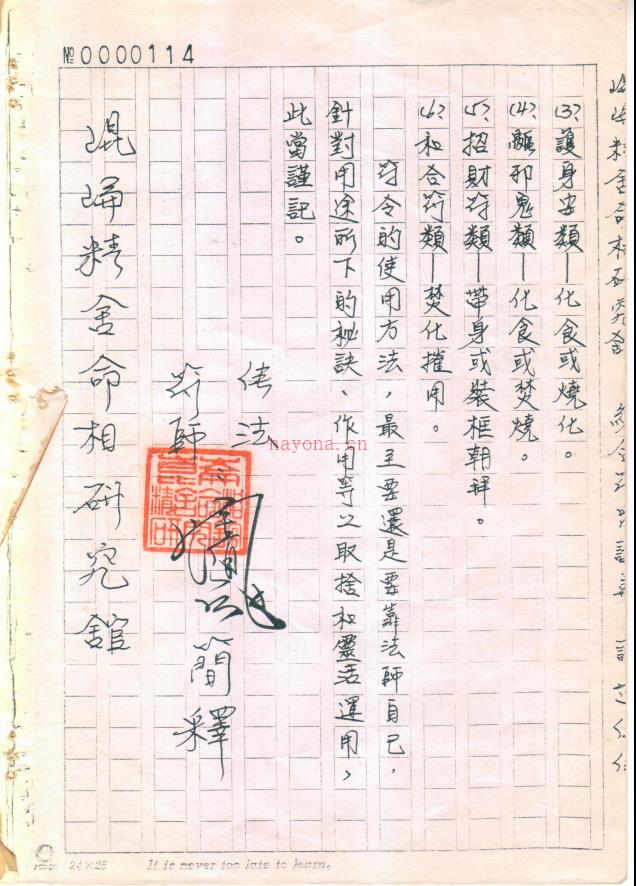 №0000114
(3)、護身安類—化食或燒化。
(4)、離邪鬼類—化食或焚燒。
(5)、招財符類—帶身或裝框朝拜。
(6)、和合符類—焚化摧用。
符令的使用方法，最主要還是要靠法師自己，
針對用途所下的秘訣、作用等以取捨和靈活運用，
此當謹記。
传法
符師：
簡釋
崑崙精舍命相研究舘
nayona.cn
24×25 It is never too late to learn.